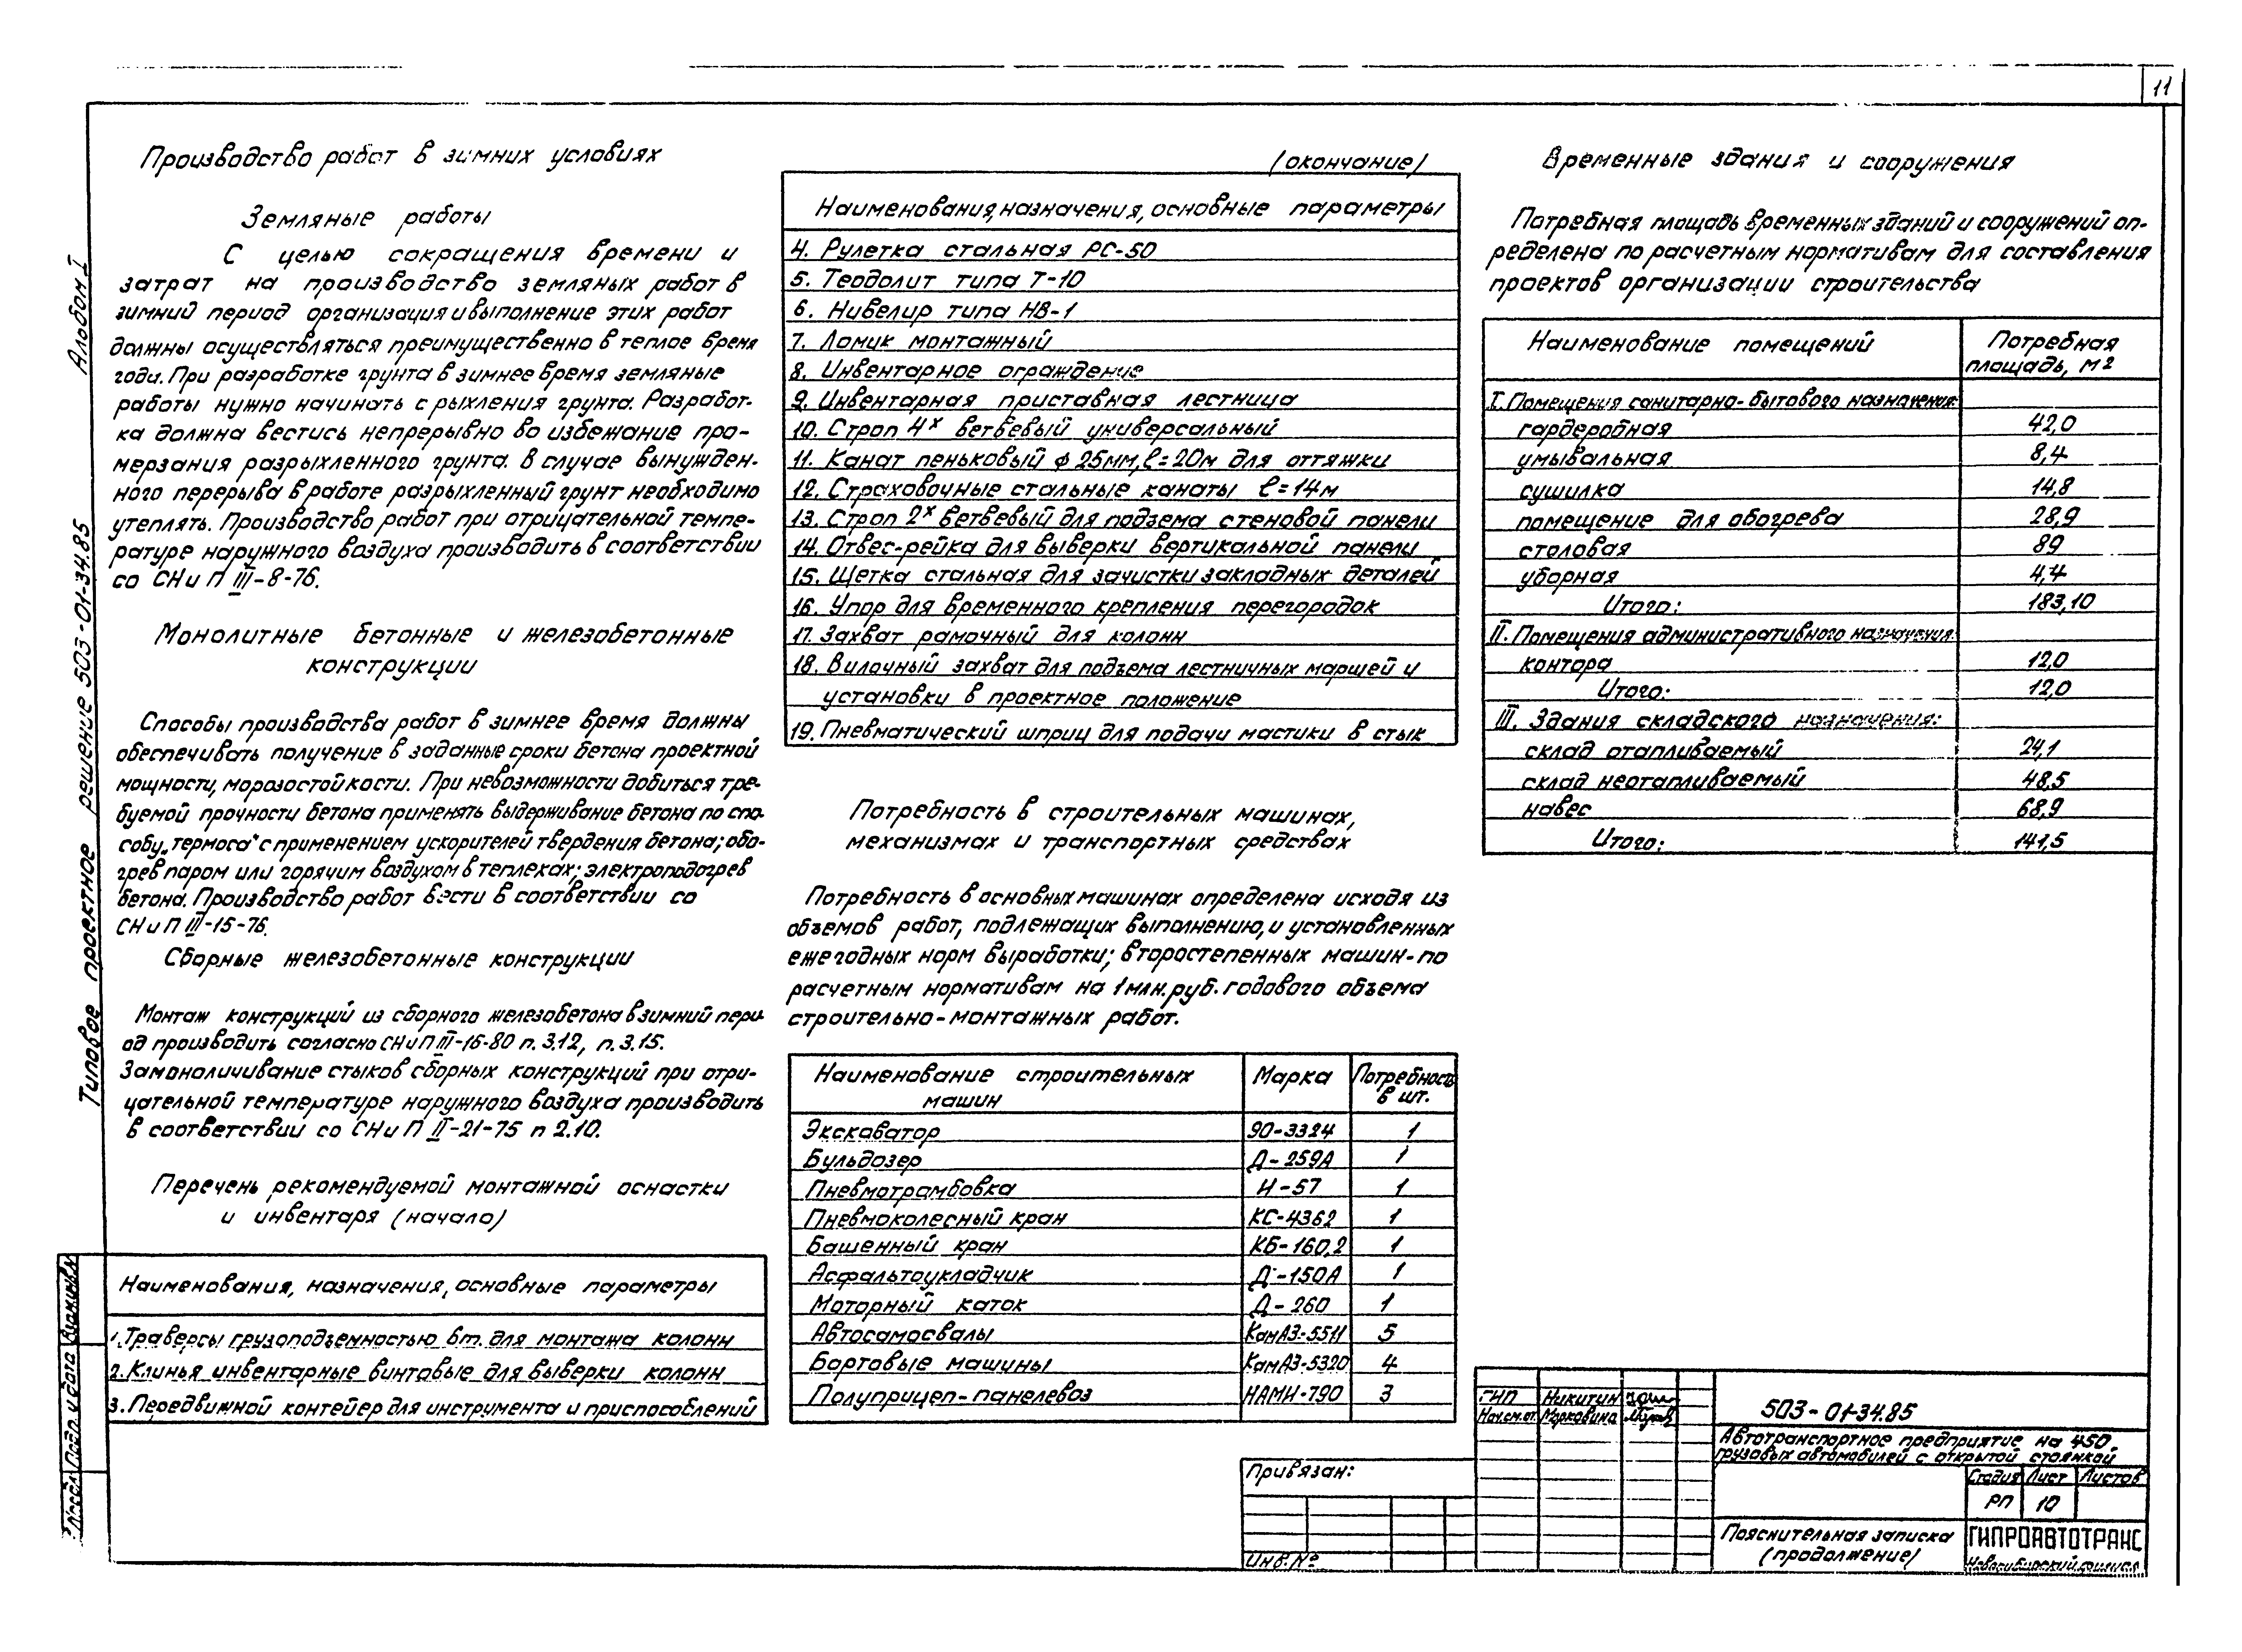 11
Альбом I
Типовое проектное решение 503-01-34.85
Производство работ в зимних условиях
Земляные работы
С целью сокращения времени и
затрат на производство земляных работ в
зимний период организация и выполнение этих работ
должны осуществляться преимущественно в теплое время
года. При разработке грунта в зимнее время земляные
работы нужно начинать с рыхления грунта. Разработ-
ка должна вестись непрерывно во избежание про-
мерзания разрыхленного грунта. В случае вынужден-
ного перерыва в работе разрыхленный грунт необходимо
утеплять. Производство работ при отрицательной темпе-
ратуре наружного воздуха производить в соответствии
со СНиП III-8-76.
Монолитные бетонные и железобетонные
конструкции
Способы производства работ в зимнее время должны
обеспечивать получение в заданные сроки бетона проектной
мощности, морозостойкости. При невозможности добиться тре-
буемой прочности бетона применять выдерживание бетона по спо-
собу „термоса" с применением ускорителей твердения бетона; обо-
грев паром или горячим воздухом в теплеках; электроподогрев
бетона. Производство работ вести в соответствии со
СНиП III-15-76.
Сборные железобетонные конструкции
Монтаж конструкций из сборного железобетона в зимний пери-
од производить согласно СНиП III-16-80 п. 3.12, п. 3.15.
Замоноличивание стыков сборных конструкций при отри-
цательной температуре наружного воздуха производить
в соответствии со СНиП II-21-75 п 2.10.
Перечень рекомендуемой монтажной оснастки
и инвентаря (начало)
Наименования, назначения, основные параметры
1. Траверсы грузоподъемностью 6т. для монтажа колонн
2. Клинья инвентарные винтовые для выверки колонн
3. Передвижной контейер для инструмента и приспособлений
(окончание)
Наименования, назначения, основные параметры
4. Рулетка стальная РС-50
5. Теодолит типа Т-10
6. Нивелир типа НВ-1
7. Ломик монтажный
8. Инвентарное ограждение
9. Инвентарная приставная лестница
10. Строп 4х ветвевый универсальный
11. Канат пеньковый ϕ 25мм, ℓ=20м для оттяжки
12. Страховочные стальные канаты ℓ=14м
13. Строп 2х ветвевый для подъема стеновой панели
14. Отвес-рейка для выверки вертикальной панели
15. Щетка стальная для зачистки закладных деталей
16. Упор для временного крепления перегородок
17. Захват рамочный для колонн
18. Вилочный захват для подъема лестничных маршей и
установки в проектное положение
19. Пневматический шприц для подачи мастики в стык
Потребность в строительных машинах,
механизмах и транспортных средствах
Потребность в основных машинах определена исходя из
объемов работ, подлежащих выполнению, и установленных
ежегодных норм выработки; второстепенных машин-по
расчетным нормативам на 1 млн. руб. годового объема
строительно-монтажных работ.
Наименование строительных машин Марка Потребность в шт.
Экскаватор ЭО-3324 1
Бульдозер Д-259А 1
Пневмотрамбовка И-57 1
Пневмоколесный кран КС-4362 1
Башенный кран КБ-160,2 1
Асфальтоукладчик Д-150А 1
Моторный каток Д-260 1
Автосамосвалы КамАЗ-5511 5
Бортовые машины КамАЗ-5320 4
Полуприцеп-панелевоз НАМИ-790 3
Временные здания и сооружения
Потребная площадь временных зданий и сооружений оп-
ределена по расчетным нормативам для составления
проектов организации строительства
Наименование помещений Потребная площадь, м2
I. Помещения санитарно-бытового назначения:
гардеробная 42,0
умывальная 8,4
сушилка 14,8
помещение для обогрева 28,9
столовая 89
уборная 4,4
Итого: 183,10
II. Помещения административного назначения:
контора 12,0
Итого: 12,0
III. Здания складского назначения:
склад отапливаемый 24,1
склад неотапливаемый 48,5
навес 68,9
Итого: 141,5
Взам.инв.№
Подп. и дата
Привязан:
Инв. №
ГИП Никитин
Нач.см.от. Марковина
503-01-34.85
Автотранспортное предприятие на 450
грузовых автомобилей с открытой стоянкой
Стадия Лист Листов
РП 10
Пояснительная записка
(продолжение)
ГИПРОАВТОТРАНС
Новосибирский филиал